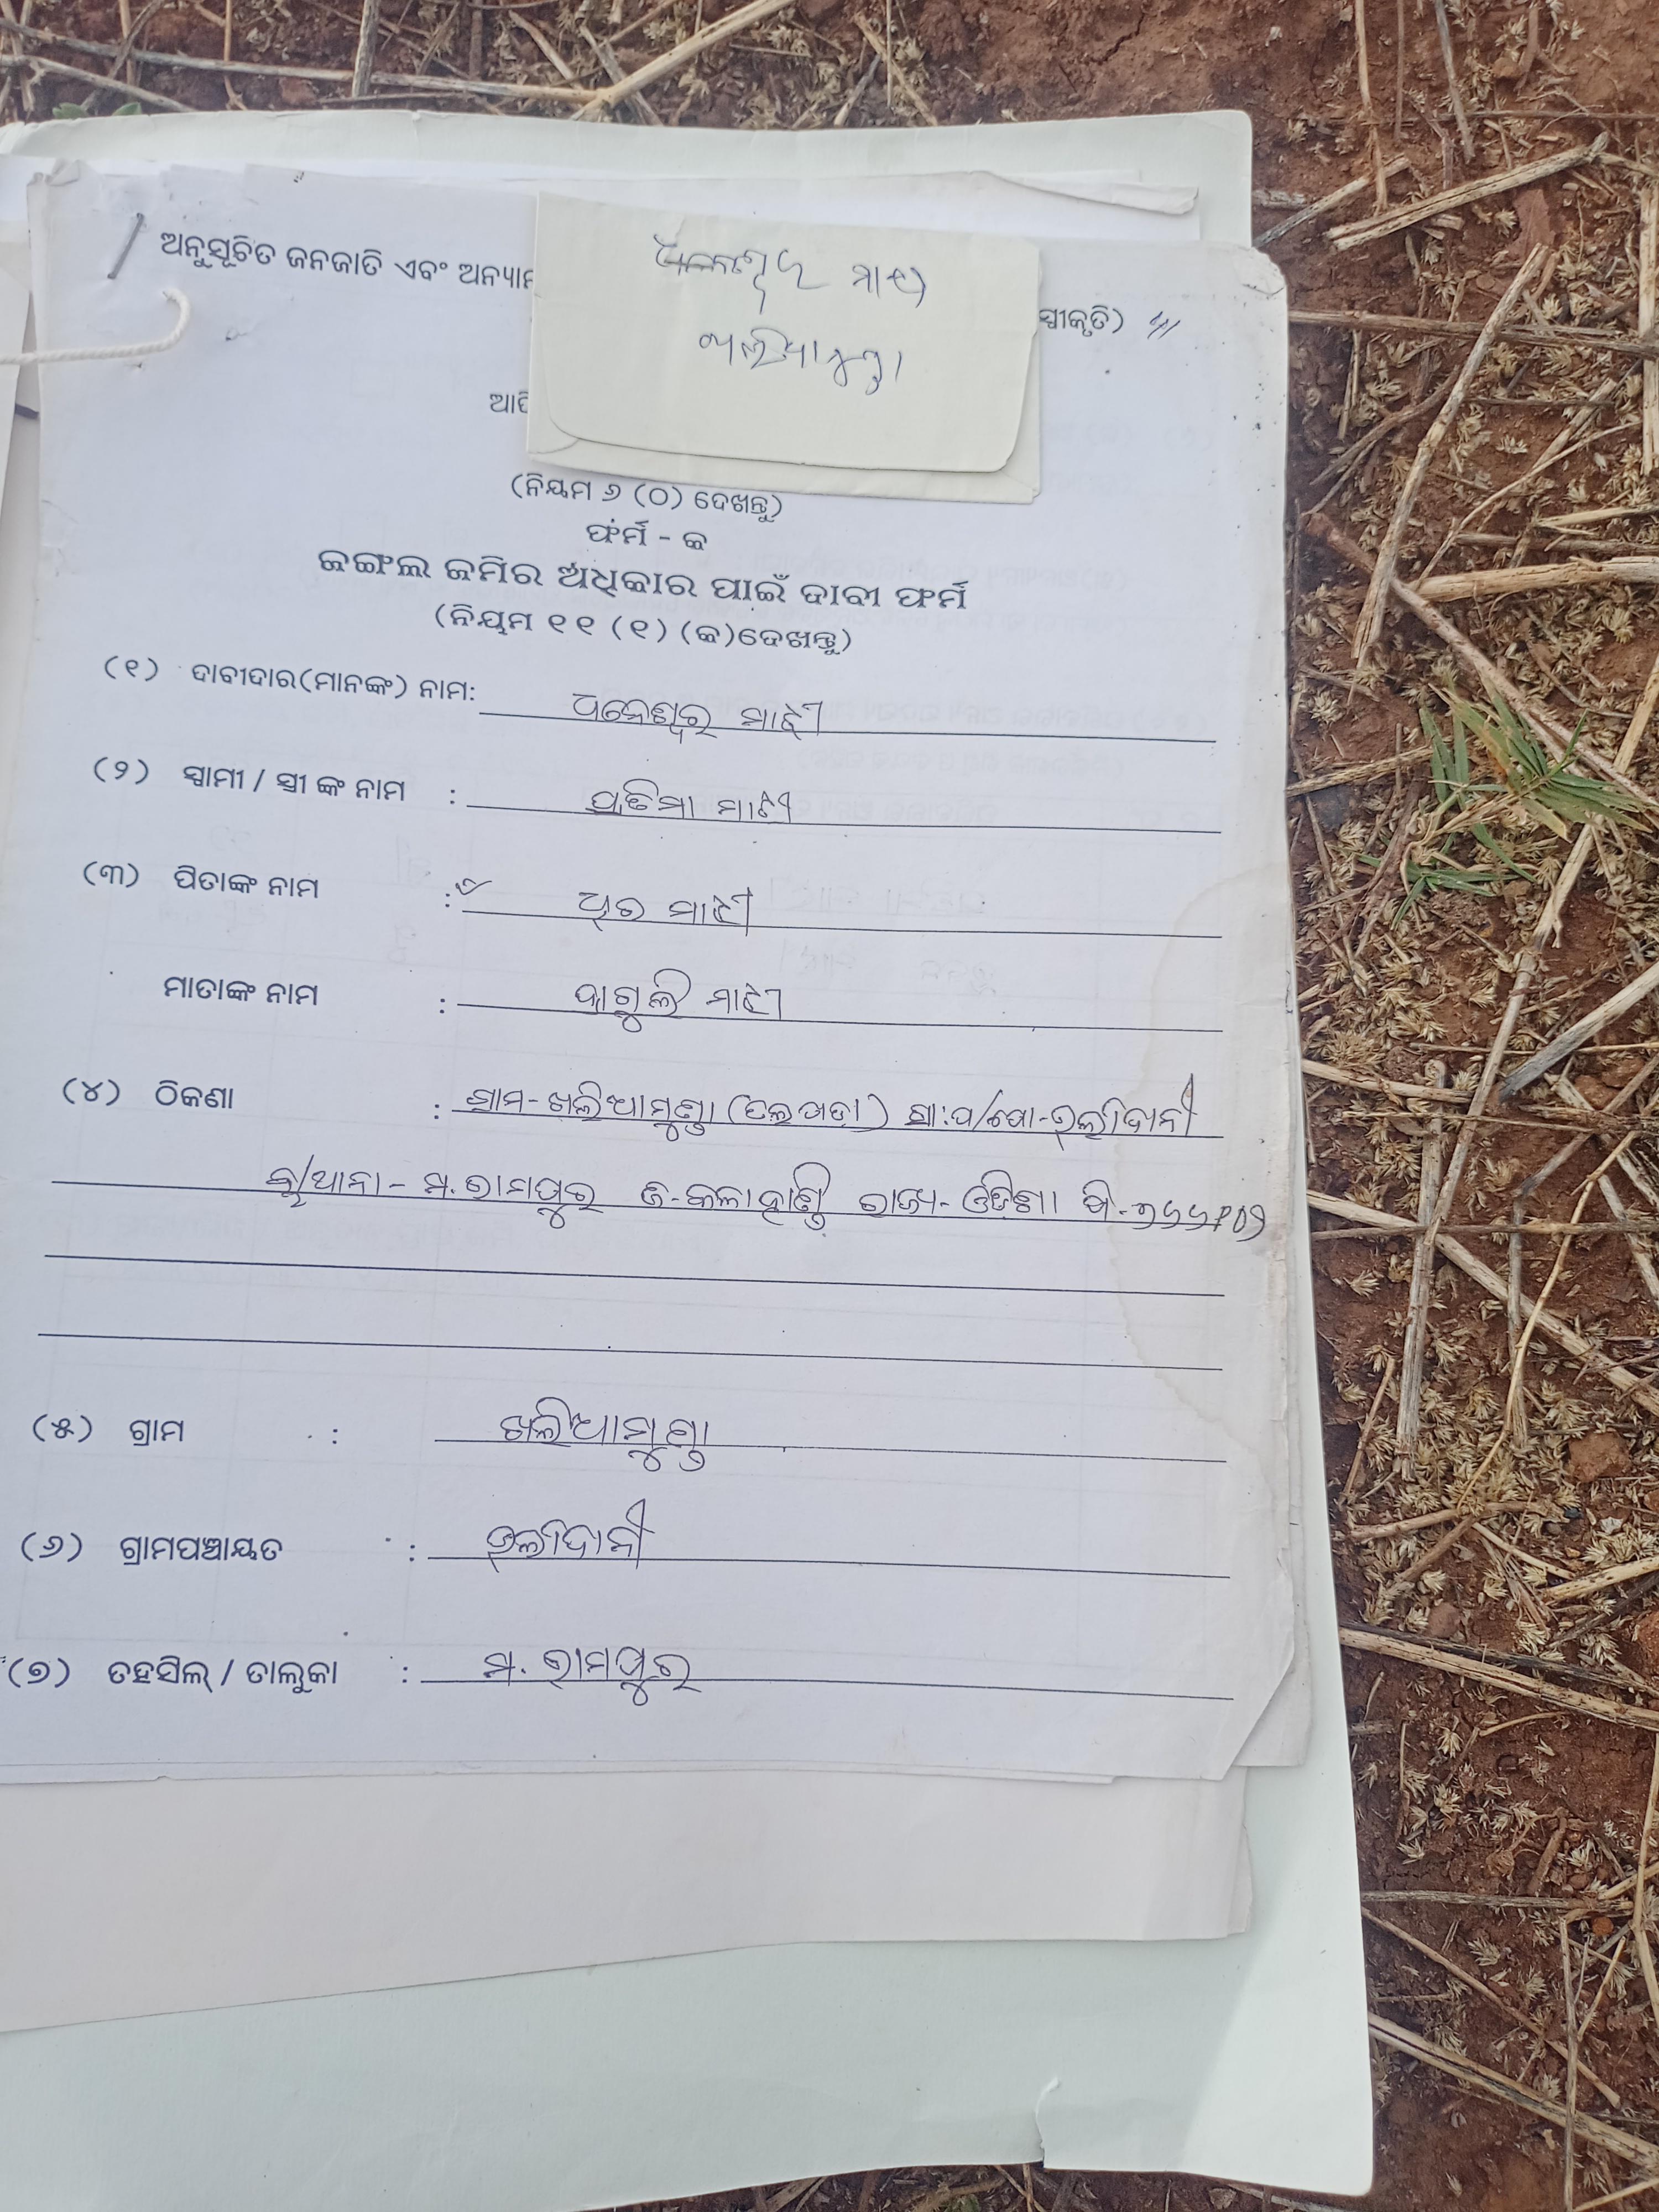 ଅନୁସୂଚିତ ଜନଜାତି ଏବଂ ଅନ୍ୟାନ
ସ୍ୱୀକୃତି)
ମାଝୀ
ଖଲିଆମୁଣ୍ଡା
(ନିୟମ ୬ (୦) ଦେଖନ୍ତୁ)
ଫର୍ମ - କ
ଜଙ୍ଗଲ ଜମିର ଅଧିକାର ପାଇଁ ଦାବୀ ଫର୍ମ
(ନିୟମ ୧୧ (୧) (କ)ଦେଖନ୍ତୁ)
(୧) ଦାବୀଦାର(ମାନଙ୍କ) ନାମ: ଧନେଶ୍ୱର ମାଝୀ
(୨) ସ୍ୱାମୀ / ସ୍ତ୍ରୀ ଙ୍କ ନାମ : ପ୍ରତିମା ମାଝୀ
(୩) ପିତାଙ୍କ ନାମ : ମାଝୀ
ମାତାଙ୍କ ନାମ : ମାଝୀ
(୪) ଠିକଣା : ଗ୍ରାମ-ଖଲିଆମୁଣ୍ଡା
ଥାନା- ମ.ରାମପୁର ଜି-କଳାହାଣ୍ଡି ରାଜ୍ୟ-ଓଡ଼ିଶା ପି-୭୬୬୧୦୨
(୫) ଗ୍ରାମ : ଖଲିଆମୁଣ୍ଡା
(୬) ଗ୍ରାମପଞ୍ଚାୟତ :
(୭) ତହସିଲ୍ / ତାଲୁକା : ମ. ରାମପୁର